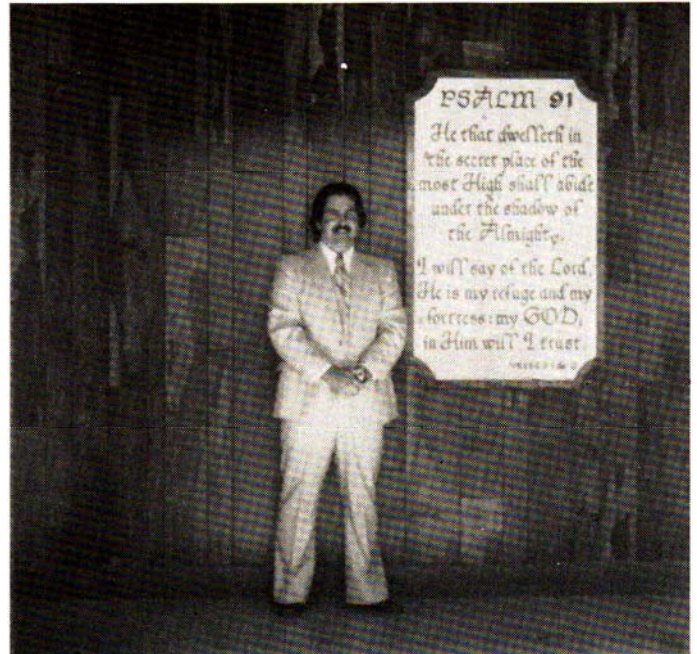 PSALM 91
He that dwelleth in
the secret place of the
most High shall abide
under the shadow of
the Almighty.
I will say of the Lord,
He is my refuge and my
fortress: my GOD,
in Him will I trust